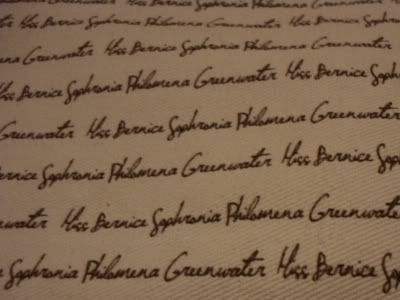 Miss Bernice Sophronia
Miss Bernice Sophronia Philomena Greenwater Miss Bernice Sophronia
Greenwater Miss Bernice Sophronia Philomena Greenwater
Miss Bernice Sophronia Philomena Greenwater Miss Bernice
Greenwater Miss Bernice Sophronia Philomena Greenwater
Bernice Sophronia Philomena Greenwater Miss Bernice Soph
water Miss Bernice Sophronia Philomena Greenwate
Sophronia Philomena Greenwater Miss Bernice Soph